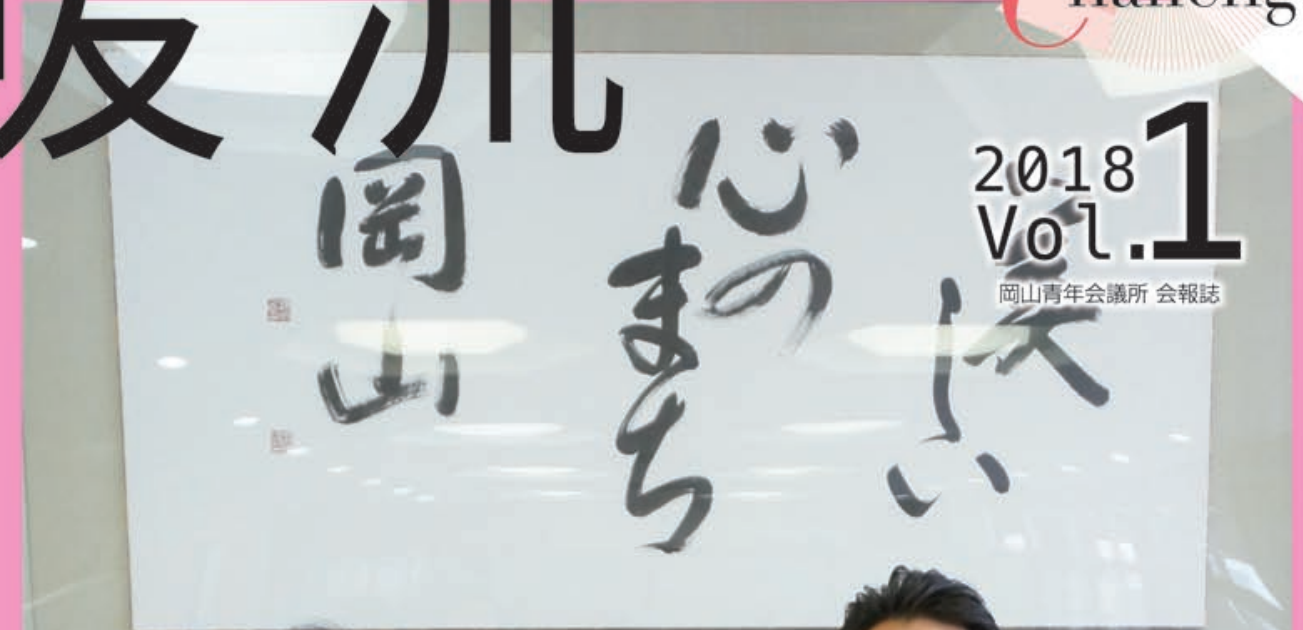 2018
Vol.1
岡山青年会議所 会報誌
美しい
心の
まち
岡山